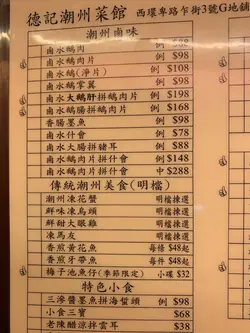 德記潮州菜館 西環卑路乍街3號G地舖
潮州鹵味
鹵水鵝肉 例 $98
鹵水鵝肉片 例 $108
鹵水鵝(淨片) 例 $168
鹵水鵝掌翼 例 $98
鹵水大鵝肝拼鵝肉片 例 $168
香腸墨魚 例 $98
鹵水什會 例 $78
鹵水大腸拼豬耳 例 $88
鹵水鵝肉片拼什會 例 $148
鹵水鵝肉片拼什會 中 $288
傳統潮州美食(明檔)
潮州凍花蟹 明檔揀選
鮮味凍烏頭 明檔揀選
鮮甜大眼雞 明檔揀選
凍馬友 明檔揀選
香煎黃花魚 每條 $48起
香煎牙帶魚 每件 $48起
梅子池魚仔(季節限定) 小碟 $32
特色小食
三滲醬墨魚拼海蜇頭 例 $98
小食三寶 $68
老陳醋涼拌雲耳 例 $38